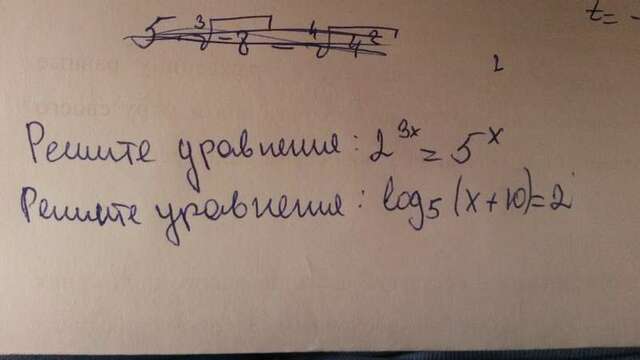 t=
5 ∛-8 - ∜4²
2
Решите уравнения: 2^3x = 5^x
Решите уравнения: log₅(x+10)=2